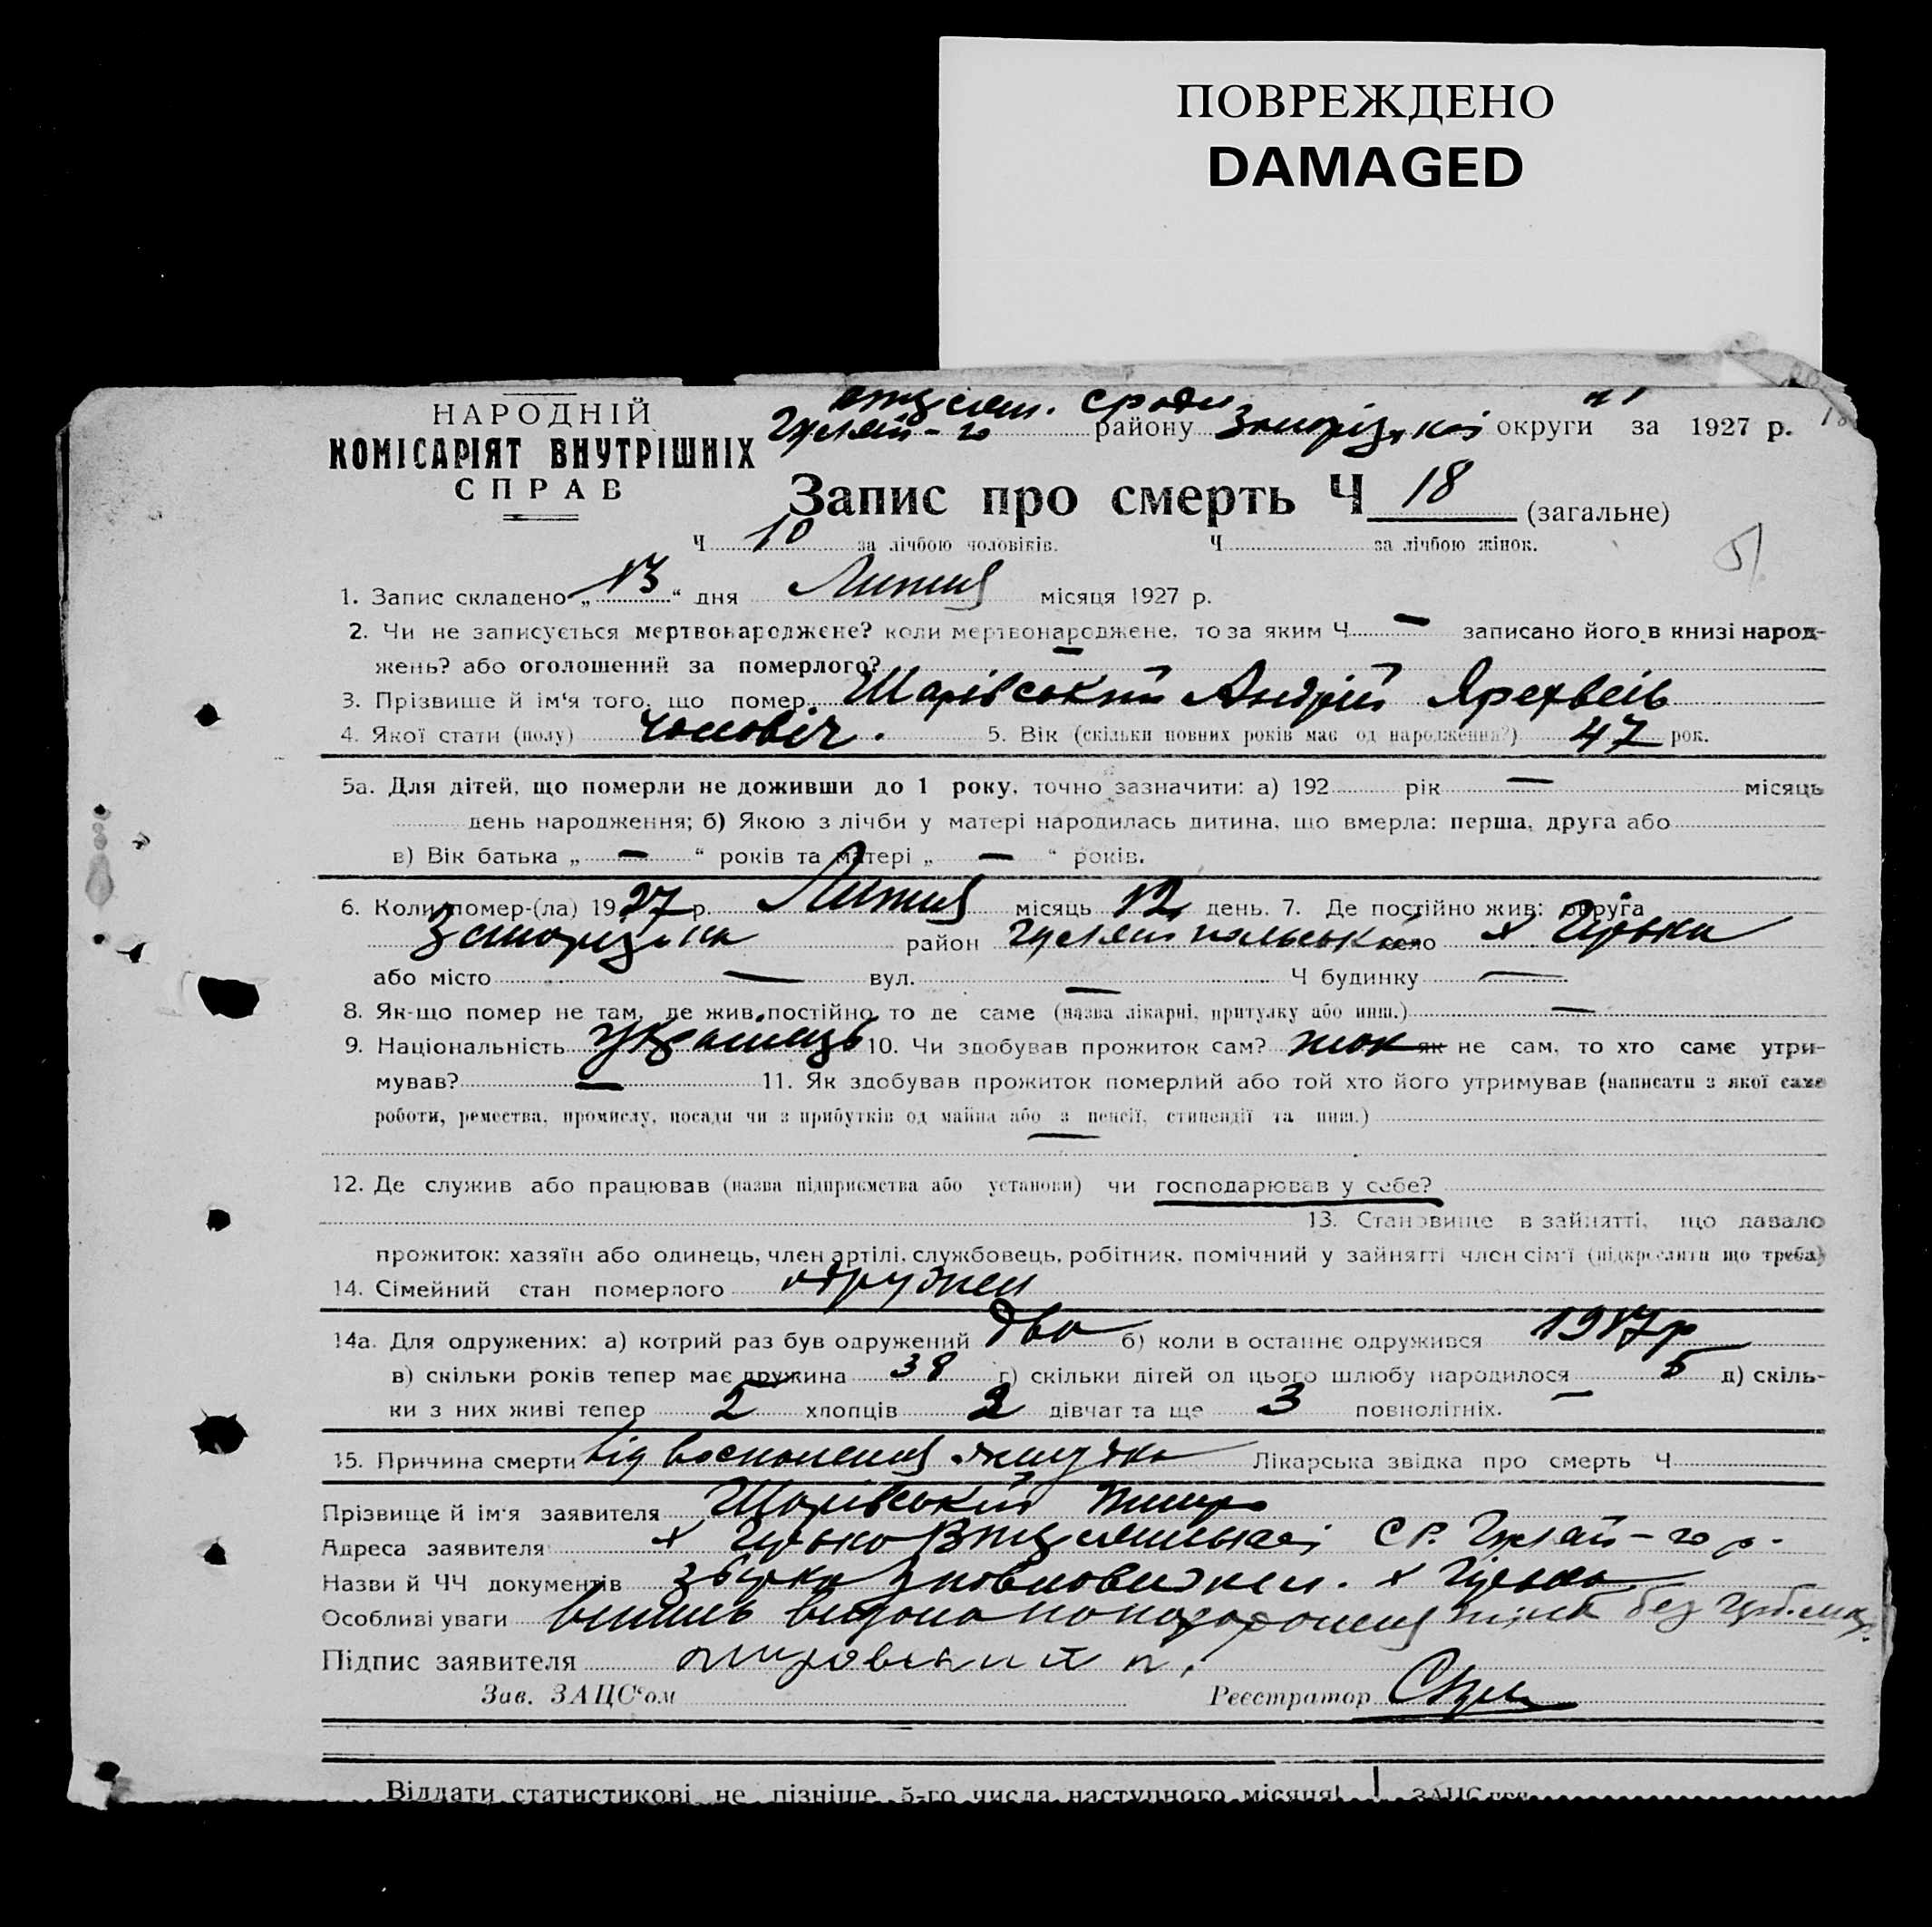 ПОВРЕЖДЕНО
DAMAGED
НАРОДНІЙ
КОМІСАРІЯТ ВНУТРІШНІХ
СПРАВ
Гуляй-го району Запорізької округи за 1927 р.
Запис про смерть Ч 18 (загальне)
Ч 10 за лічбою чоловіків. Ч за лічбою жінок.
51
1. Запис складено „ 13 “ дня місяця 1927 р.
2. Чи не записується мертвонароджене? коли мертвонароджене, то за яким Ч — записано його в книзі народ-
жень? або оголошений за померлого? —
3. Прізвище й ім'я того, що помер Шарівський Андрій
4. Якої стати (полу) чоловіч. 5. Вік (скільки повних років має од народження?) 47 рок.
5а. Для дітей, що померли не доживши до 1 року, точно зазначити: а) 192 рік — місяць
день народження; б) Якою з лічби у матері народилась дитина, що вмерла: перша, друга або
в) Вік батька „ — “ років та матері „ — “ років.
6. Коли помер-(ла) 1927 р. місяць 12 день. 7. Де постійно жив: округа
Запорізька район Гуляйпольськ село х Гірька
або місто — вул. — Ч будинку —
8. Як-що помер не там, де жив постійно, то де саме (назва лікарні, притулку або инш.) —
9. Національність Українець 10. Чи здобував прожиток сам? так як не сам, то хто саме утри-
мував? — 11. Як здобував прожиток померлий або той хто його утримував (написати з якої саме
роботи, ремества, промислу, посади чи з прибутків од майна або з пенсії, стипендії та инш.) —
12. Де служив або працював (назва підприємства або установи) чи господарював у себе?
13. Становище в зайнятті, що давало
прожиток: хазяїн або одинець, член артілі, службовець, робітник, помічний у зайнятті член сім'ї (підкреслити що треба)
14. Сімейний стан померлого одружен
14а. Для одружених: а) котрий раз був одружений два б) коли в останнє одружився 1917р
в) скільки років тепер має дружина 38 г) скільки дітей од цього шлюбу народилося 5 д) скіль-
ки з них живі тепер 5 хлопців 2 дівчат та ще 3 повнолітніх. —
15. Причина смерти від воспаления желудка Лікарська звідка про смерть Ч
Прізвище й ім'я заявителя Шарівський
Адреса заявителя х Гірько СР. Гуляй-го р.
Назви й ЧЧ документів х Гірька
Особливі уваги випись видана без
Підпис заявителя
Зав. ЗАЦС'ом Реєстратор
Віддати статистикові не пізніше 5-го числа наступного місяця!